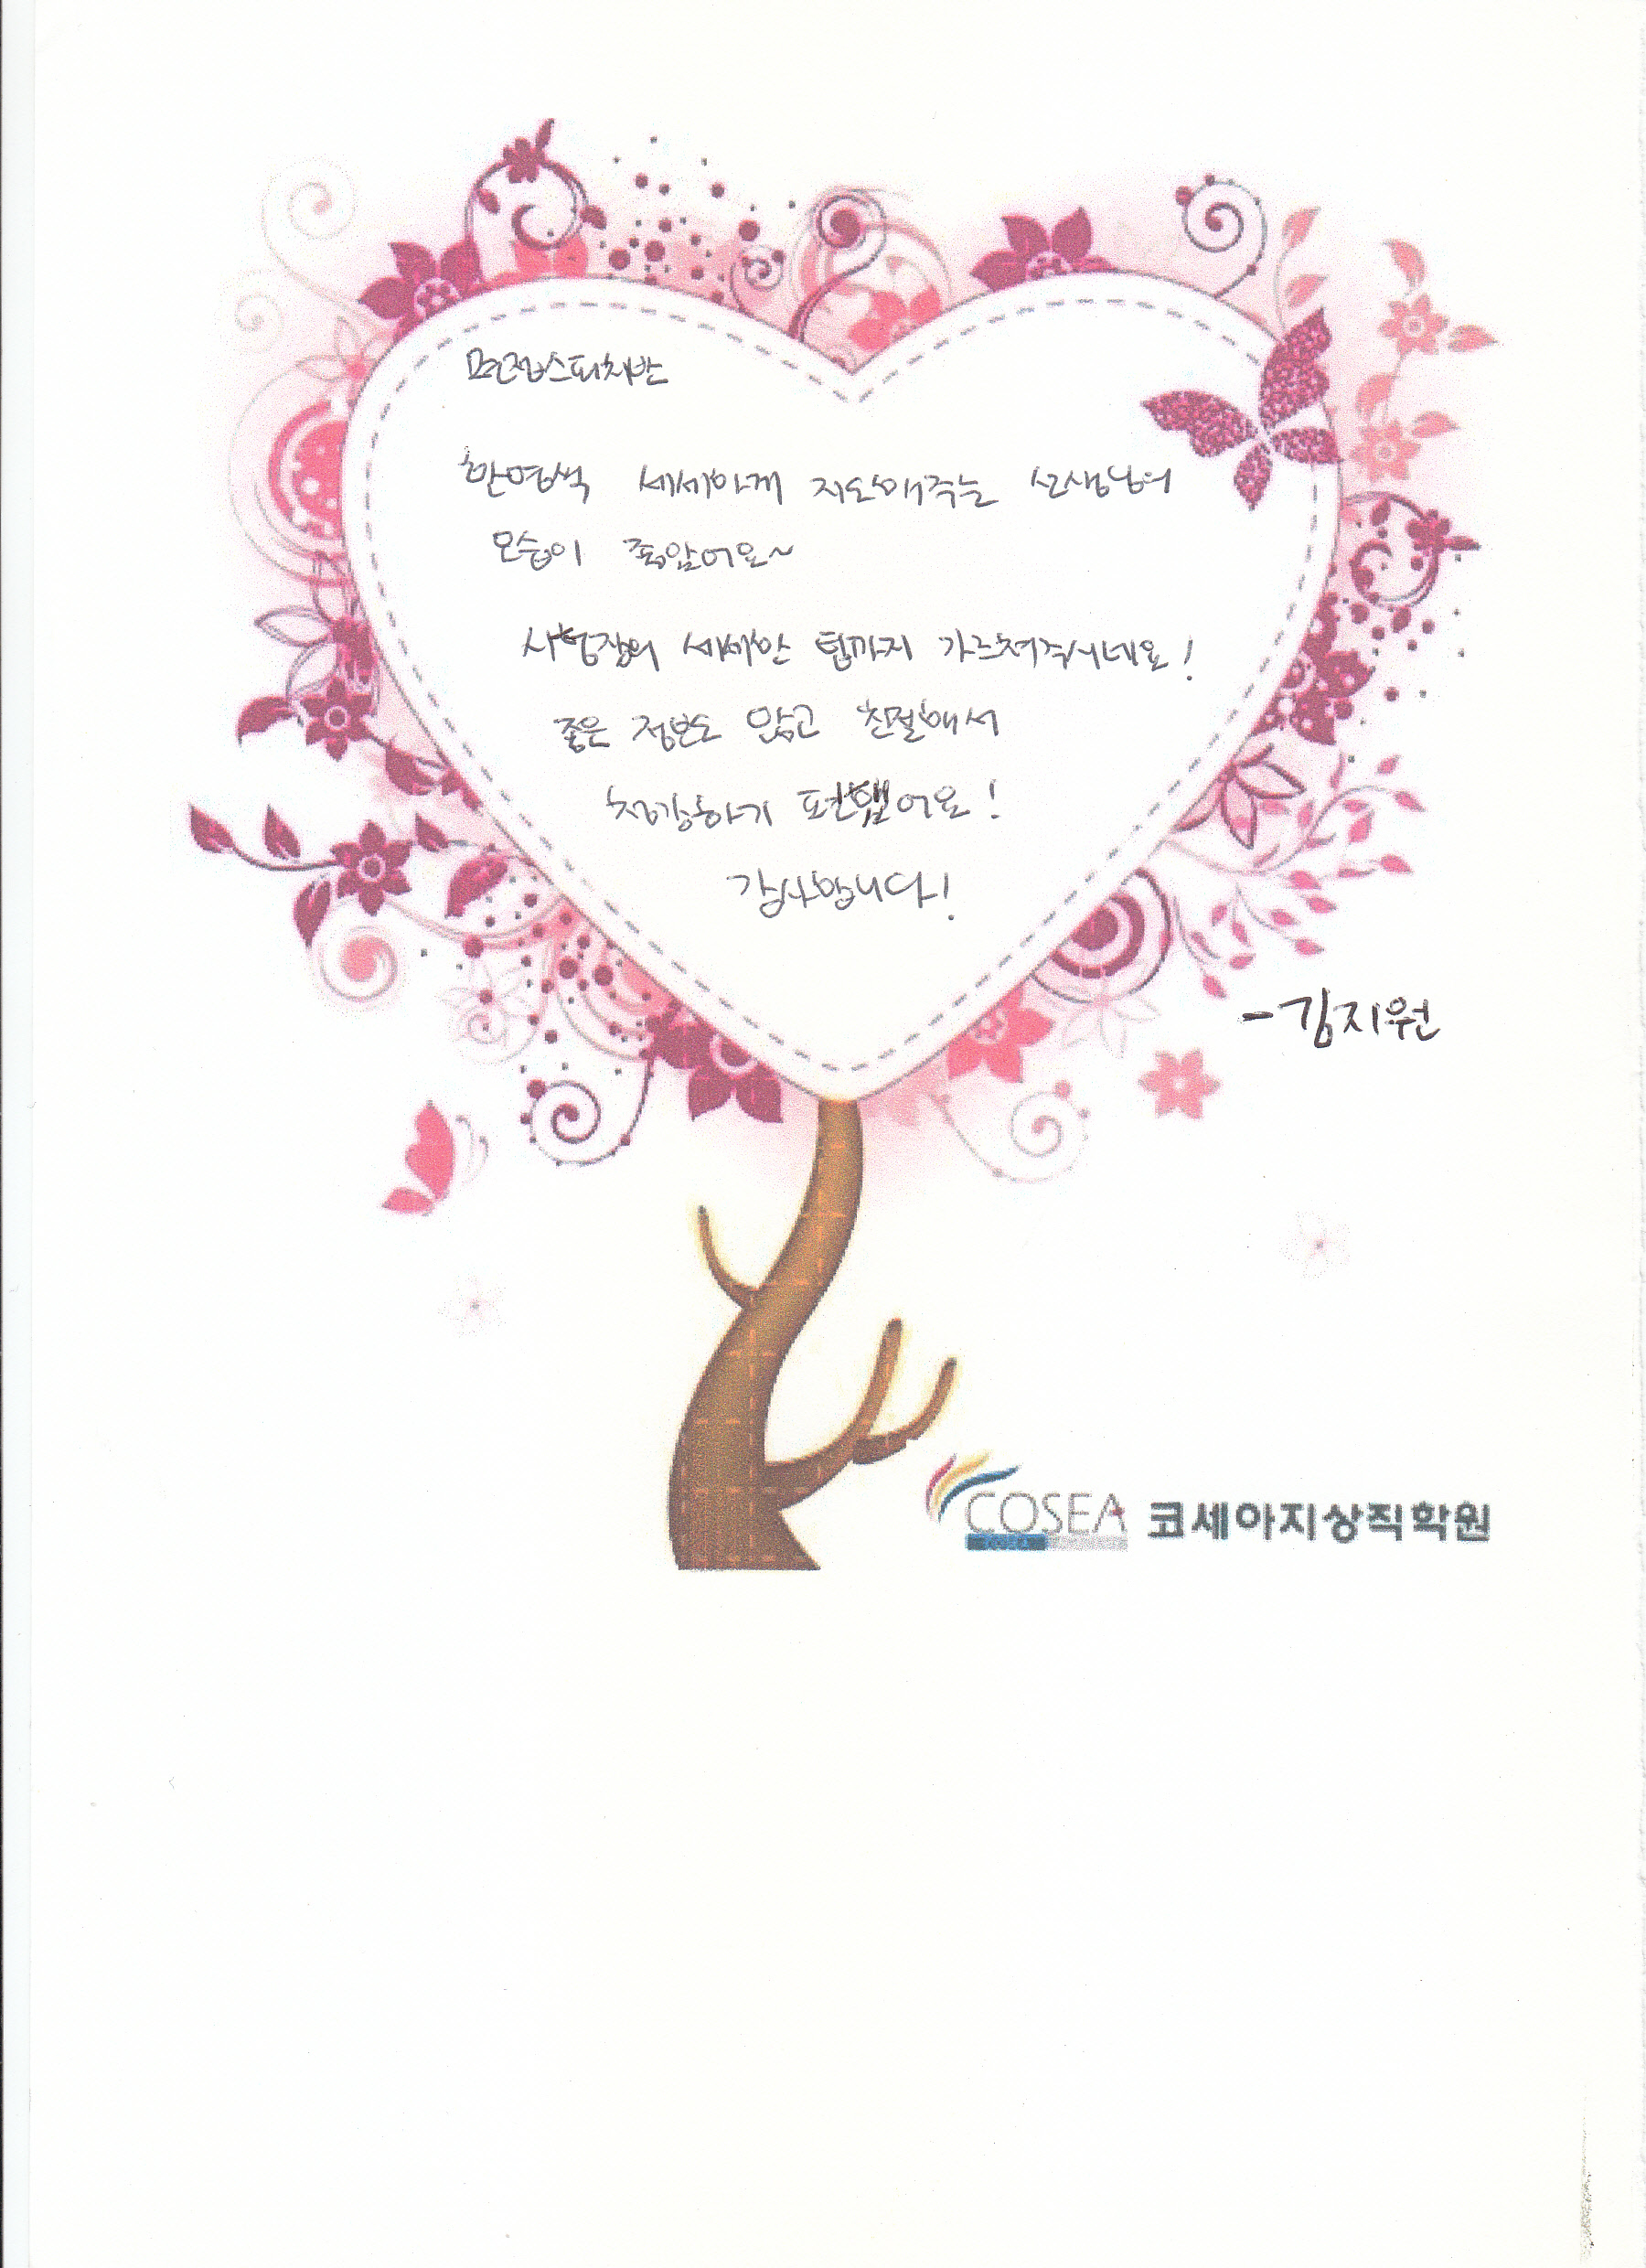 면접스피치반
한명씩 세세하게 지도해주는 선생님의
모습이 좋았어요~
시험장의 세세한 팁까지 가르쳐주시네요!
좋은 정보도 많고 친절해서
수강하기 편했어요!
감사합니다!
-김지원
COSEA 코세아지상직학원